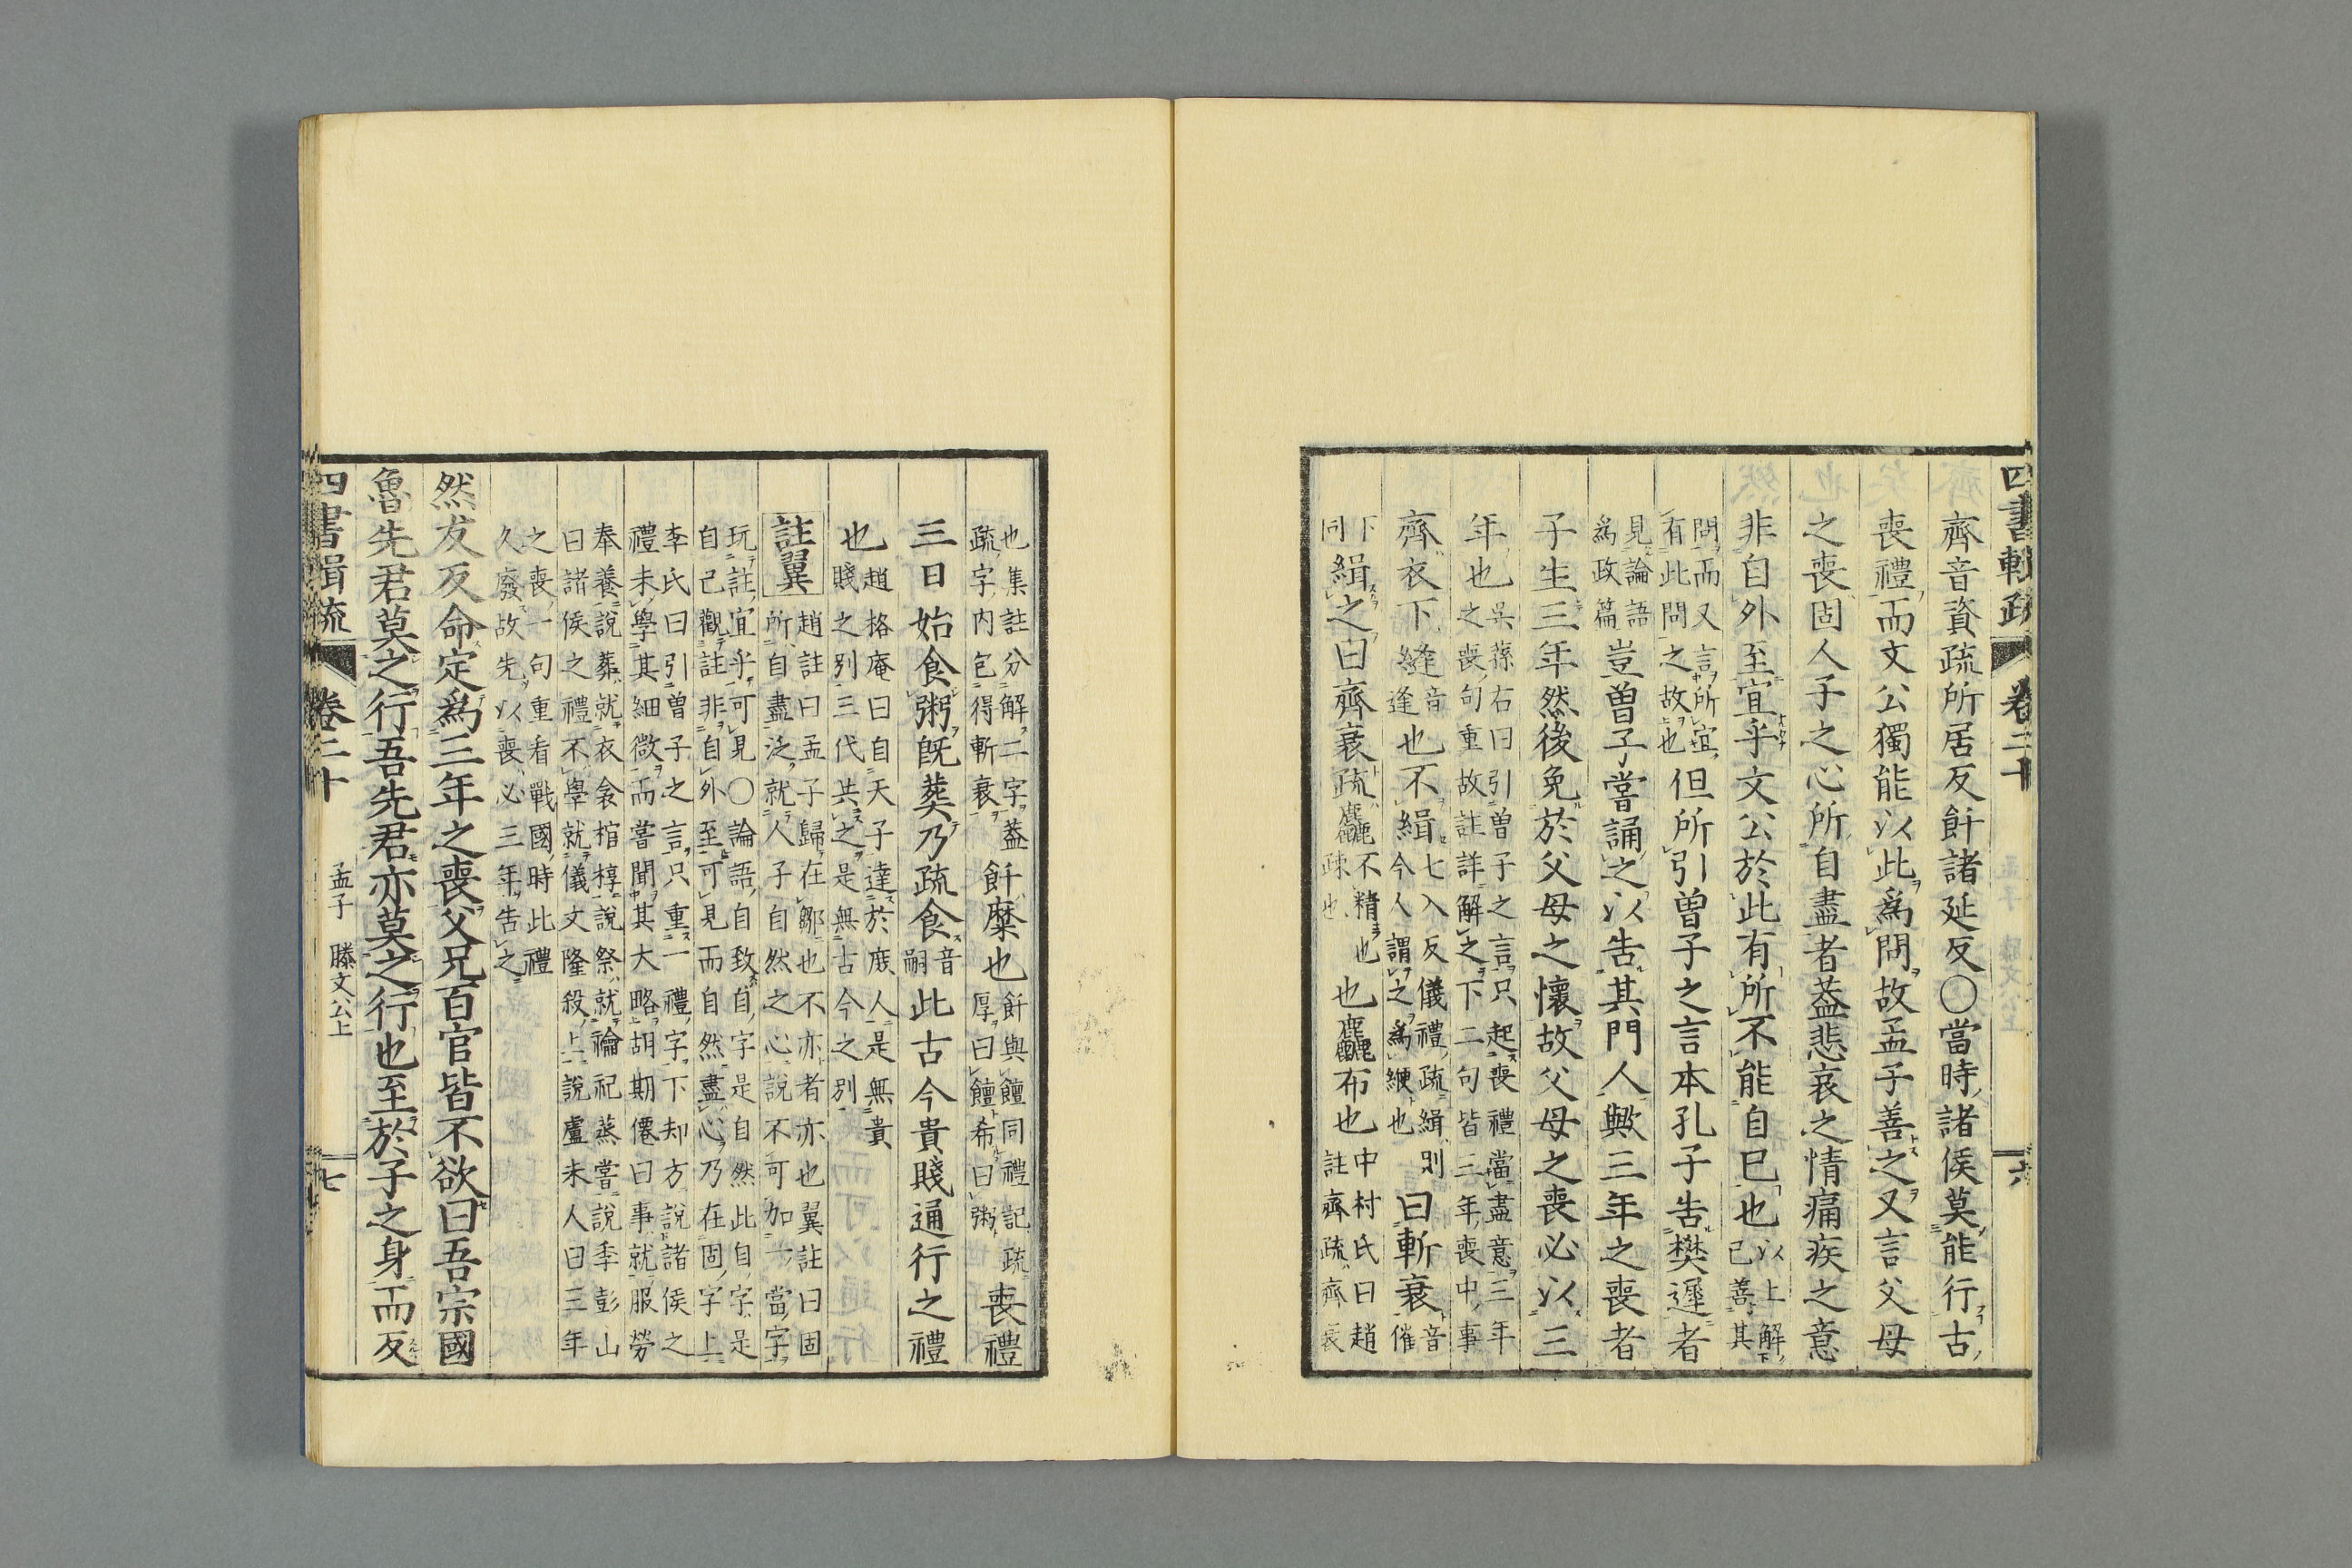 四書輯疏 卷二十 六
齊音資疏所居反飦諸延反〇當時諸侯莫能行古
喪禮而文公獨能以此爲問故孟子善之又言父母
之喪固人子之心所自盡者葢悲哀之情痛疾之意
非自外至宜乎文公於此有所不能自已也以上解下已善其
問而又言所宜有此問之故也但所引曾子之言本孔子告樊遲者
見論語爲政篇豈曾子嘗誦之以告其門人歟三年之喪者
子生三年然後免於父母之懷故父母之喪必以三
年也吳蓀右曰引曾子之言只起喪禮當盡意三年之喪句重故註詳解之下二句皆三年喪中事
齊衣下縫音逢也不緝七入反儀禮疏緝則今人謂之爲緶也曰斬衰音催
下同緝之曰齊衰疏麤不精也疎也也麤布也中村氏曰趙註齊疏齊衰
也集註分解二字葢疏字内包得斬衰飦糜也飦與饘同禮記疏厚曰饘希曰粥喪禮
三日始食粥旣葬乃疏食音嗣此古今貴賤通行之禮
也趙格庵曰自天子達於庶人是無貴賤之別三代共之是無古今之別
註翼趙註曰孟子歸在鄒也不亦者亦也翼註曰固所自盡泛就人子自然之心說不可加一當字
玩註宜乎可見〇論語自致自字是自然此自字是自己觀註非自外至可見而自然盡心乃在固字上
李氏曰引曾子之言只重一禮字下却方說諸侯之禮未學其細微而嘗聞其大略胡期僊曰事就服勞
奉養說葬就衣衾棺椁說祭就禴祀蒸嘗說季彭山曰諸侯之禮不學就儀文隆殺上說盧未人曰三年
之喪一句重看戰國時此禮久廢故先以喪必三年告之
然友反命定爲三年之喪父兄百官皆不欲曰吾宗國
魯先君莫之行吾先君亦莫之行也至於子之身而反
四書輯疏 卷二十 孟子 滕文公上 七